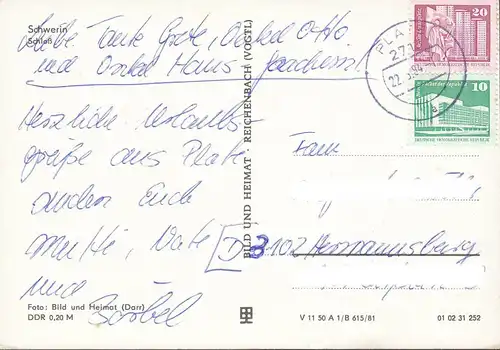 Schwerin
Schloß
Liebe Tante Grete, Onkel Otto
und Onkel Hans Joachim!
Herzliche Urlaubs-
grüße aus Plate
senden Euch
Mutti, Vati
und
Bärbel
Foto: Bild und Heimat (Darr)
DDR 0,20 M
BILD UND HEIMAT · REICHENBACH (VOGTL)
V 11 50 A 1/B 615/81
01 02 31 252
PLATE
271
22
20
DEUTSCHE DEMOKRATISCHE REPUBLIK
10
DEUTSCHE DEMOKRATISCHE REPUBLIK
Fam.
D 3102 Hermannsburg